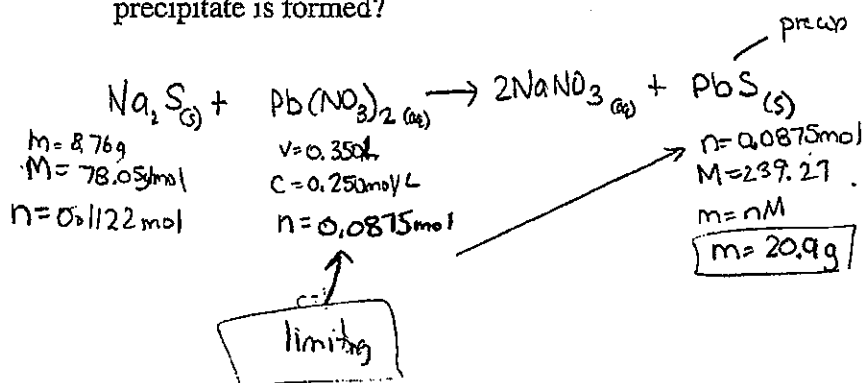 precipitate is formed?
precip
Na₂S(s) + Pb(NO₃)₂ (aq) → 2NaNO₃ (aq) + PbS (s)
m= 8.76g
M= 78.05g/mol
n= 0.1122 mol
v= 0.350L
c= 0.250mol/L
n= 0.0875mol
n= 0.0875mol
M=239.27
m= nM
m= 20.9g
limiting